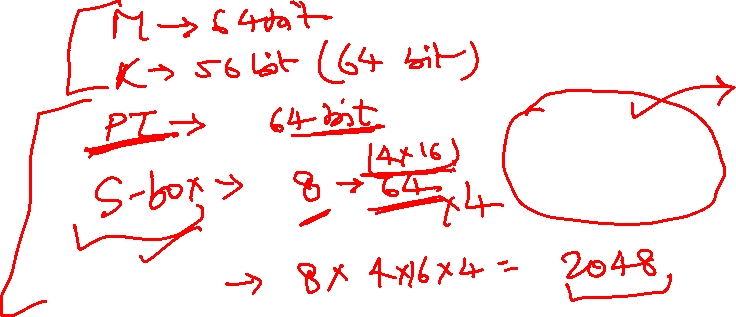 M → 64 bit
K → 56 bit (64 bit)
PI → 64 bit
(4×16)
S-box → 8 → 64 × 4
→ 8 × 4×16 × 4 = 2048